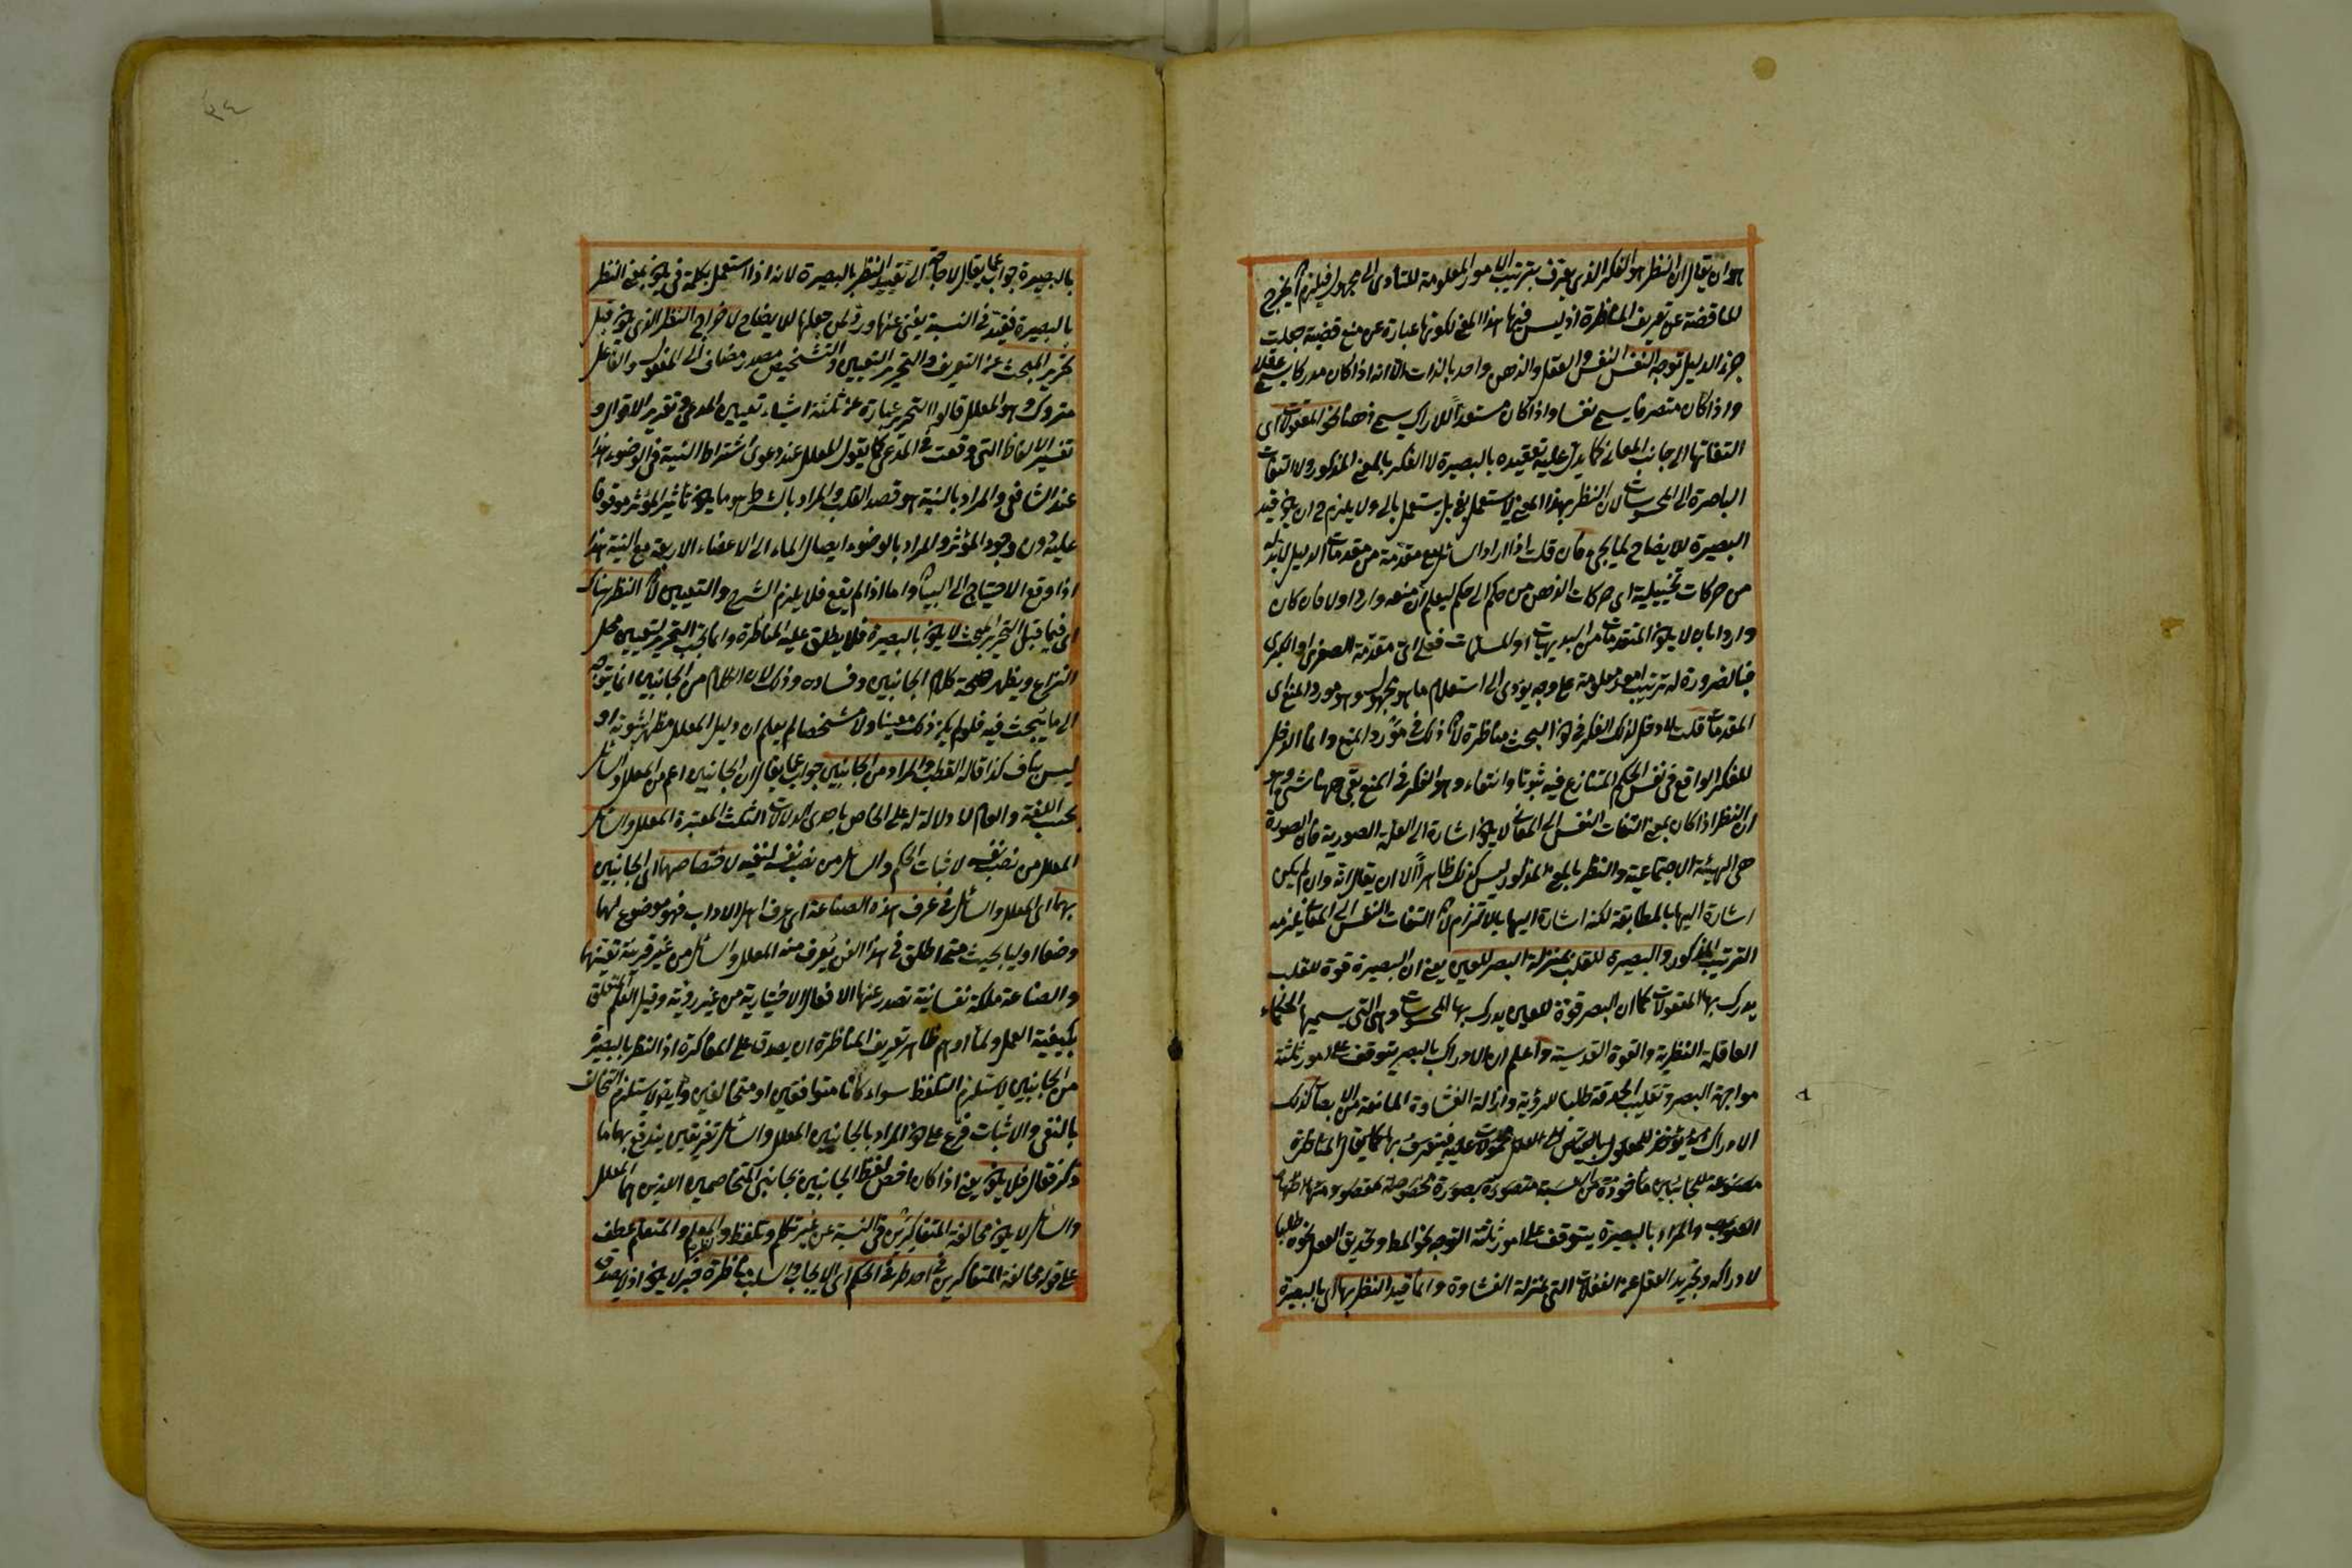 هو ان يقال ان النظر هو الفكر الذى يعرف بترتيب الامور المعلومة للتأدى الى مجهول فيلزم ان يخرج
المناقضة عن تعريف المناظرة اذ ليس فيها هذا المعنى لكونها عبارة عن منع قضية جعلت
جزء الدليل توجه النفس النفس والعقل والذهن واحد بالذات الا انه اذا كان مدركا يسمى عقلا
واذا كان متصرفا يسمى نفسا واذا كان مستعدا للادراك يسمى ذهنا نحو المعقولات اى
التفاتها الى جانب المعانى كما يدل عليه تقييده بالبصيرة لا الفكر بالمعنى المذكور ولا التفات
الباصرة الى المحسوسات لان النظر بهذا المعنى لا يستعمل بفى بل يستعمل بالى ولا يلزم ح ان يكون قيد
البصيرة للايضاح لما يجئ فان قلت اذا اراد السائل منع مقدمة من مقدمات الدليل لابد له
من حركات تخييلية اى حركات الذهن من حكم الى حكم ليعلم ان منعه وارد اولا فان كان
واردا بان لا يكون المقدمات من البديهيات او المسلمات فعلى اى مقدمة الصغرى او الكبرى
فبالضرورة له ترتيب امور معلومة على وجه يؤدى الى استعلام ما هو مجهول وهو مورد المنع اى
المقدمات قلت لا دخل لذلك الفكر فى كون البحث مناظرة لان ذلك فى مورد المنع وانما الدخل
للفكر الواقع فى نفس الحكم المتنازع فيه ثبوتا وانتفاء وهو الفكر فى المنع بقى ههنا شئ وهو
ان النظر اذا كان بمعنى التفات النفس الى المعانى لا يكون اشارة الى العلة الصورية فان الصورة
هى الهيئة الاجتماعية والنظر بالمعنى المذكور ليس كذلك ظاهرا الا ان يقال انه وان لم يكن
اشارة اليها بالمطابقة لكنه اشارة اليها بالالتزام لان التفات النفس الى المعانى يلزمه
الترتيب المذكور والبصيرة للقلب بمنزلة البصر للعين يعنى ان البصيرة قوة للقلب
يدرك بها المعقولات كما ان البصر قوة للعين يدرك بها المحسوسات وهى التى يسميها الحكماء
العاقلة النظرية والقوة القدسية واعلم ان الادراك بالبصر يتوقف على امور ثلثة
مواجهة البصر وتقليب الحدقة طلبا للرؤية وازالة الغشاوة المانعة من الابصار كذلك
الادراك
والمراد بالبصيرة يتوقف على امور ثلثة التوجه نحو المط وتحديق العقل نحوه طلبا
لادراكه وتجريد العقل عن الغفلات التى بمنزلة الغشاوة وانما قيد النظر بها اى بالبصيرة
٣٤
بالبصيرة جواب عما يقال لا حاجة الى تقييد النظر بالبصيرة لانه اذا استعمل بكلمة فى يكون بمعنى النظر
بالبصيرة فقيد فى النسبة يغنى عنها ورد ولمن جعلها للايضاح لا لاخراج النظر الذى يكون قبل
تحرير المبحث عن التعريف والتحرير التعيين والتشخيص مصدر مضاف الى المفعول والفاعل
متروك وهو المعلل قالوا التحرير عبارة عن ثلثة اشياء تعيين المدعى وتقرير الاقوال و
تفسير الالفاظ التى وقعت فى المدعى كما يقول المعلل عند دعوى اشتراط النية فى الوضوء هذا
عند الشافعى والمراد بالنية هو قصد القلب والمراد بالشرط هو ما يكون تأثير المؤثر موقوفا
عليه دون وجود المؤثر والمراد بالوضوء ايصال الماء الى الاعضاء الاربعة مع النية هذا
اذا وقع الاحتياج الى البيان واما اذا لم يقع فلا يلزم الشرح والتعيين لان النظر هناك
اى فيما قبل التحرير المبحث لا يكون بالبصيرة فلا يطلق عليه المناظرة وانما يجب التحرير لتعيين محل
النزاع ويظهر صحة كلام الجانبين وفساده وذلك لان الكلام من الجانبين انما يتوجه
الى ما يبحث فيه فلو لم يكن ذلك معينا ولا مشخصا لم يعلم ان دليل المعلل مظهر لثبوته او
ليس بكاف كذا قاله القطب والمراد من الجانبين جواب عما يقال ان الجانبين اعم من المعلل والسائل
بحسب اللغة والعام لا دلالة له على الخاص باحدى الدلالات الثلث المعتبرة المعلل والسائل
المعلل من نصب نفسه لاثبات الحكم والسائل من نصب نفسه لنفيه لاختصاصهما اى الجانبين
بهما اى المعلل والسائل فى عرف هذه الصناعة اى عرف اهل الاداب فهو موضوع لهما
وضعا اوليا بحيث متى اطلق فى هذا الفن يعرف منه المعلل والسائل من غير قرينة تعينهما
والصناعة ملكة نفسانية تصدر عنها الافعال الاختيارية من غير روية وقيل العلم المتعلق
بكيفية العمل ولما اوهم ظاهر تعريف المناظرة ان يصدق على المفاكرة اذ النظر بالبصيرة
من الجانبين لا يستلزم التلفظ سواء كانا متوافقين او متخالفين وايضا لا يستلزم التخالف
بالنفى والاثبات فرع على كون المراد بالجانبين المعلل والسائل تفريعين يندفع بهما ما
ذكر فقال فلا يكون يعنى اذا كان اختص لفظ الجانبين بجانبى المتخاصمين الذين هما المعلل
والسائل لا يكون مخالفة المتفاكرين فى النسبة عن غير تكلم وتلفظ والمعلم والمتعلم عطف
على قوله مخالفة المتفاكرين فى احد طرفى الحكم اى الايجاب والسلب مناظرة خبر لا يكون اذ لا يصدق